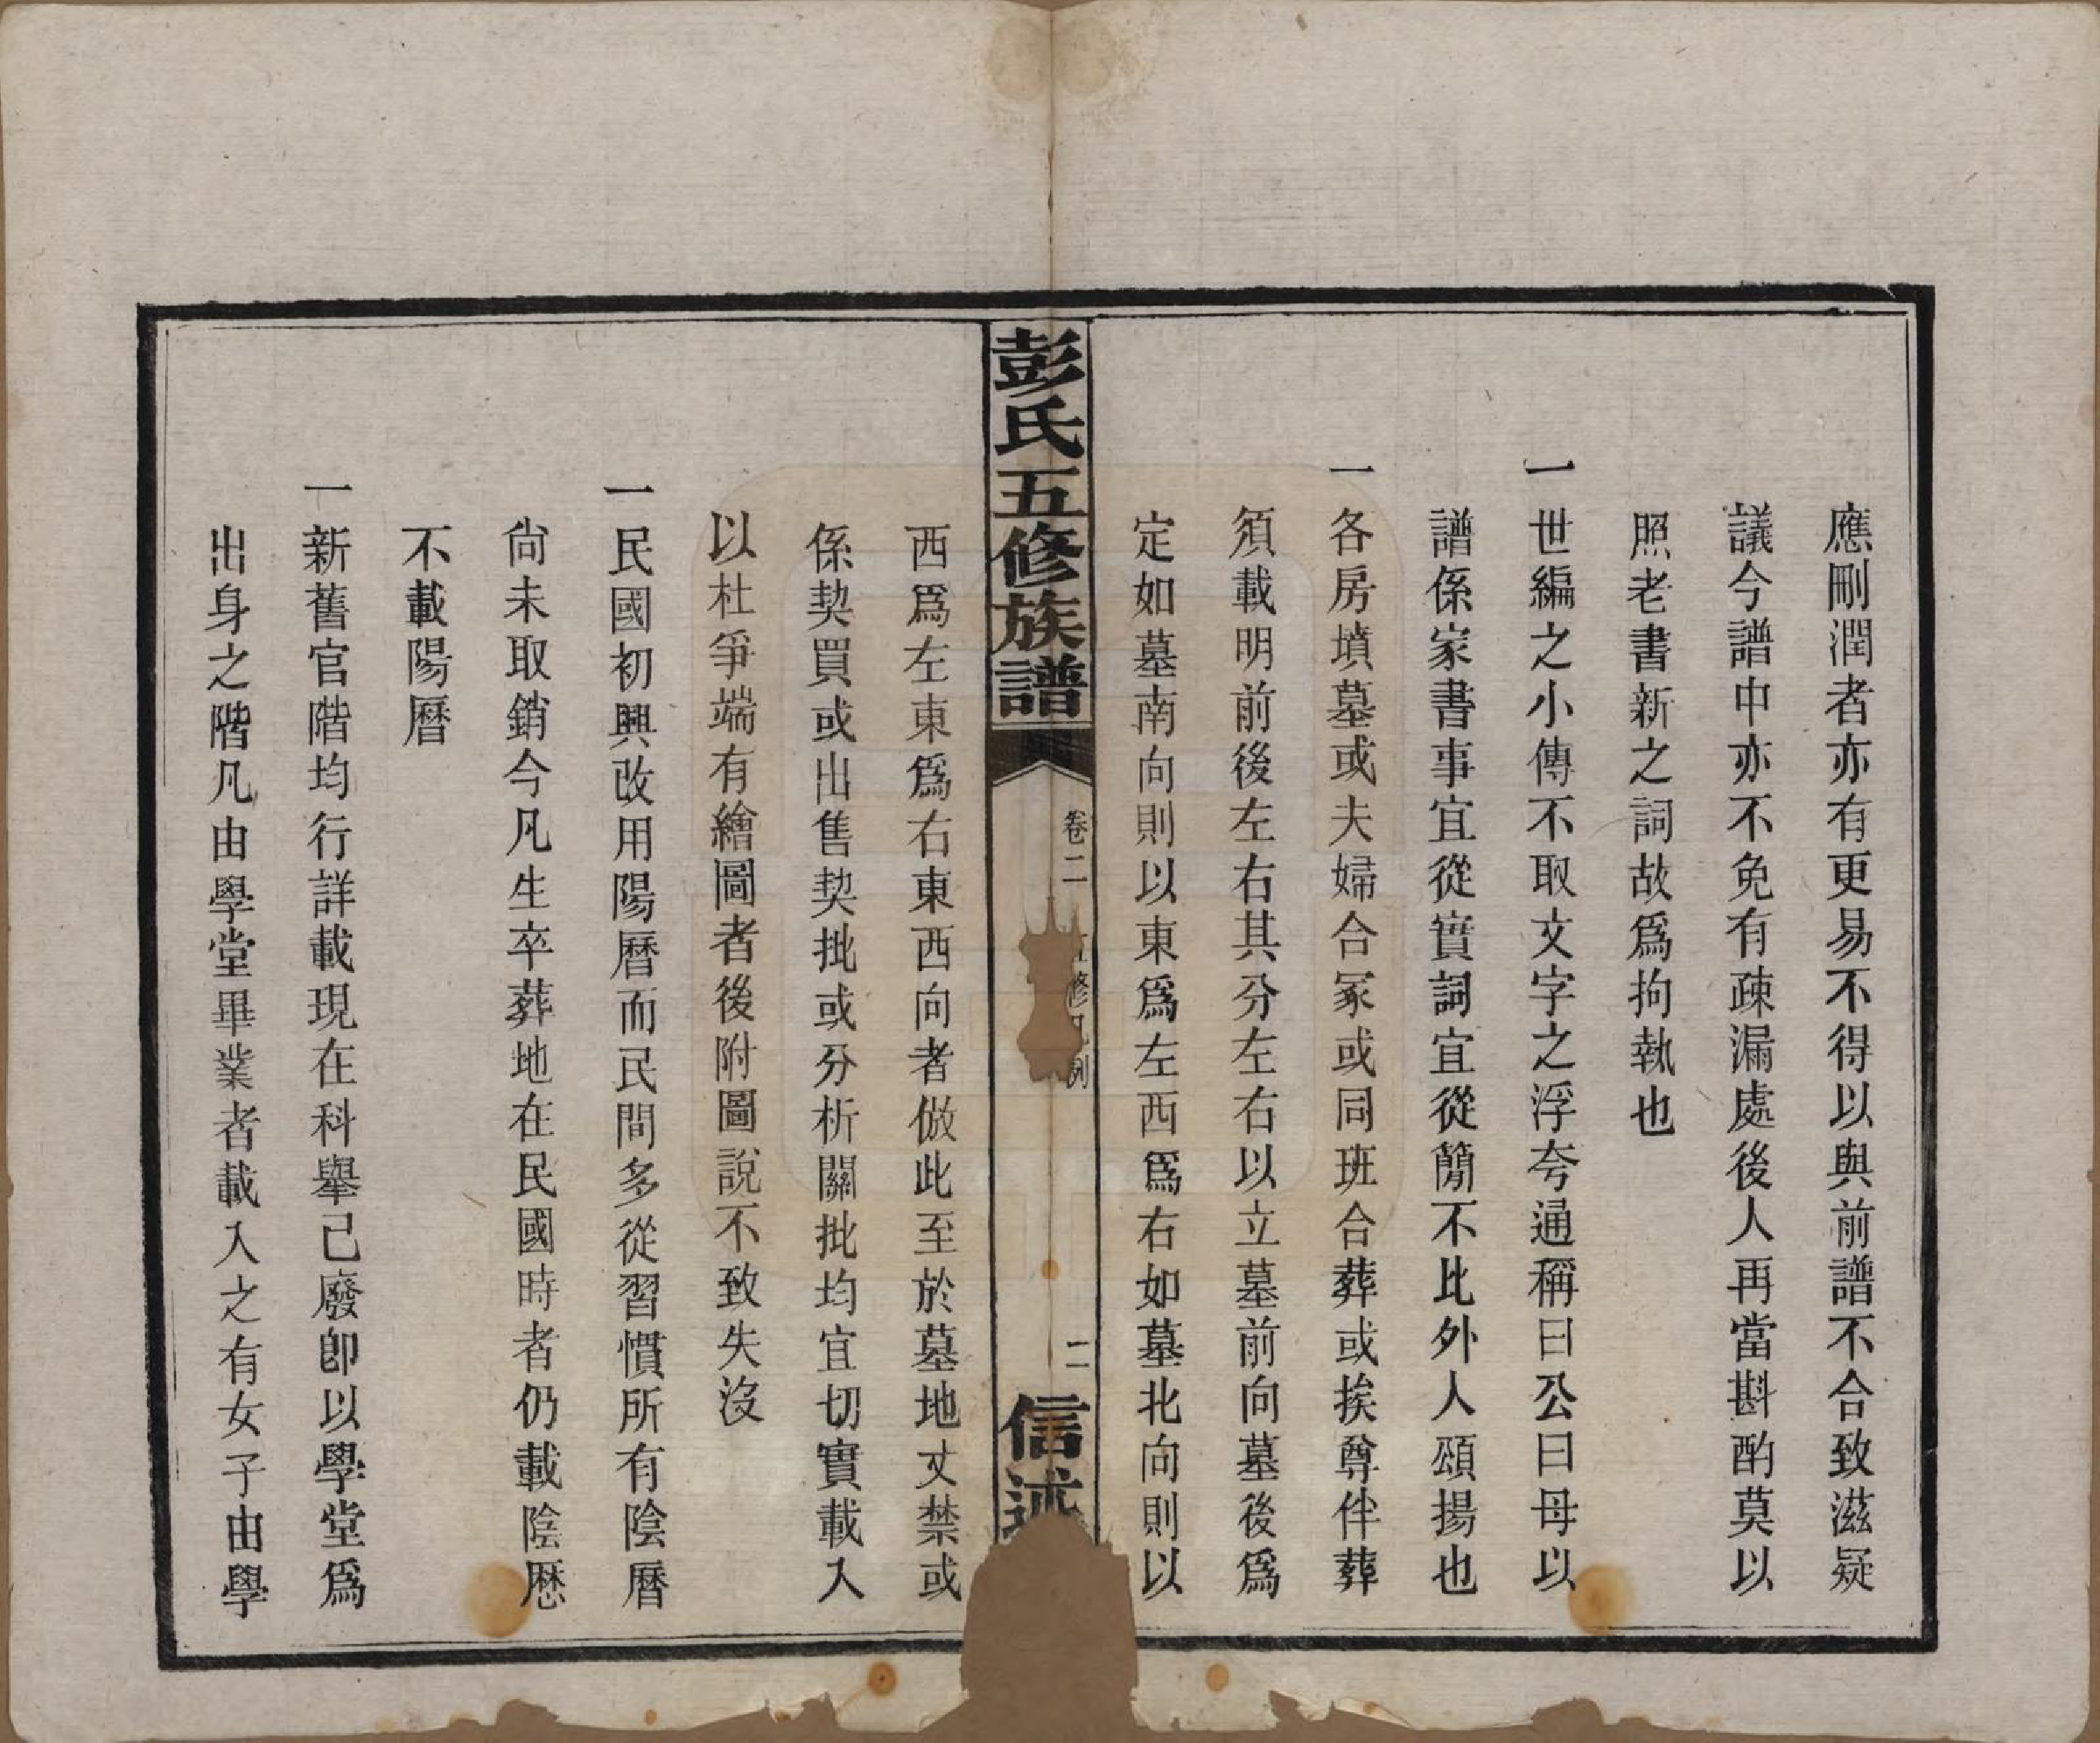 應刪潤者亦有更易不得以與前譜不合致滋疑
議今譜中亦不免有疎漏處後人再當斟酌莫以
照老書新之詞故爲拘執也
一世編之小傳不取文字之浮夸通稱曰公曰母以
譜係家書事宜從實詞宜從簡不比外人頌揚也
一各房墳墓或夫婦合冢或同班合葬或挨尊伴葬
須載明前後左右其分左右以立墓前向墓後爲
定如墓南向則以東爲左西爲右如墓北向則以
彭氏五修族譜
卷二
修凡例
二
信述
西爲左東爲右東西向者倣此至於墓地丈禁或
係契買或出售契批或分析關批均宜切實載入
以杜爭端有繪圖者後附圖說不致失沒
一民國初興改用陽曆而民間多從習慣所有陰曆
尙未取銷今凡生卒葬地在民國時者仍載陰歷
不載陽曆
一新舊官階均行詳載現在科舉己廢卽以學堂爲
出身之階凡由學堂畢業者載入之有女子由學